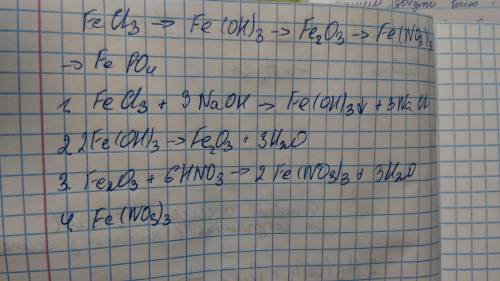 FeCl3 → Fe(OH)3 → Fe2O3 → Fe(NO3)3
→ FePO4
1. FeCl3 + 3NaOH → Fe(OH)3↓ + 3NaCl
2. 2Fe(OH)3 → Fe2O3 + 3H2O
3. Fe2O3 + 6HNO3 → 2Fe(NO3)3 + 3H2O
4. Fe(NO3)3